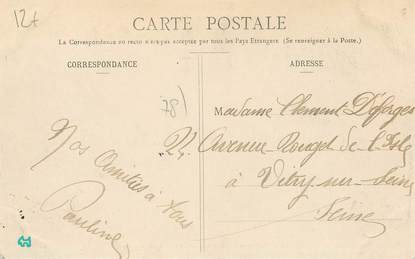 12t
CARTE POSTALE
La Correspondance au recto n'est pas acceptée par tous les Pays Etrangers (Se renseigner à la Poste.)
CORRESPONDANCE
ADRESSE
78)
Nos amitiés à tous
Pauline
Madame Clément Deforges
22 Avenue Rouget de l'Isle
à Vitry-sur-Seine
Seine